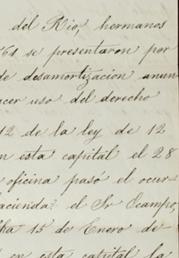 del Rio, hermanos
61 se presentaron por
de desamortizacion anun
acer uso del derecho
12 de la ley de 12
n esta capital el 28
oficina pasó el ocur
acienda: el Sr Ocampo,
ha 15 de Enero de
en esta capital la